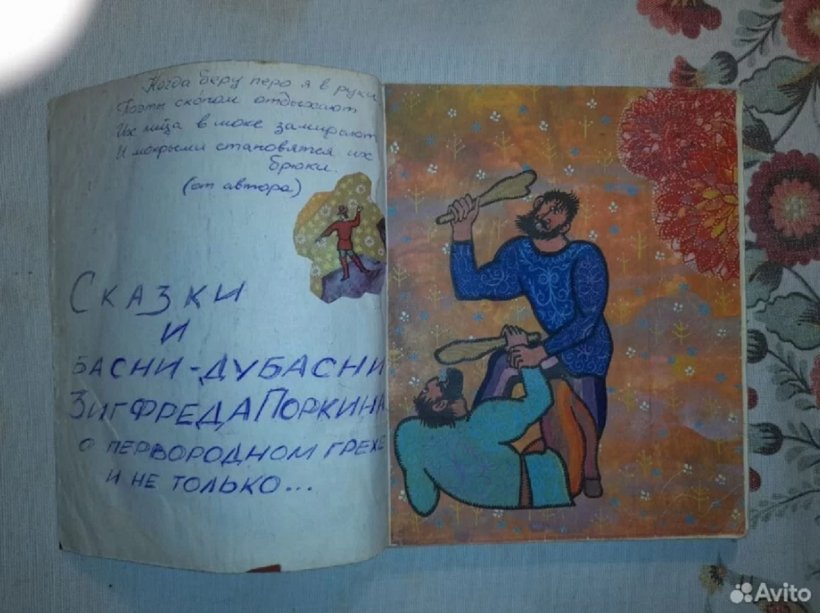 Когда беру перо я в руки
Поэты скопом отдыхают
Их лица в моке замирают
И мокрыми становятся их
брюки.
(от автора)
Сказки
и
басни-дубасни
Зигфреда Поркина
о первородном грехе
и не только...
Avito